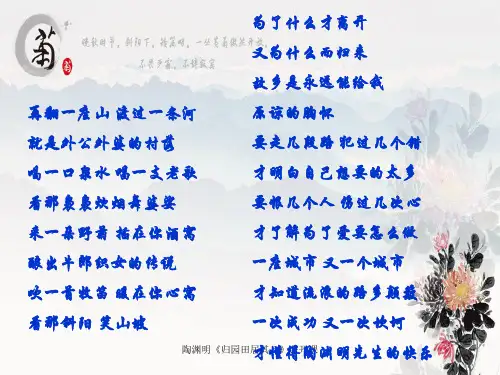 菊
晚秋时节，斜阳下，一丝黄菊傲然开放，
不畏严霜，不惧寂寞
再翻一座山 渡过一条河
就是外公外婆的村落
喝一口泉水 唱一支老歌
看那袅袅炊烟舞婆娑
采一朵野菊 插在你酒窝
酿出牛郎织女的传说
吹一首牧笛 暖在你心窝
看那斜阳 笑山坡
为了什么才离开
又为什么而归来
故乡是永远能给我
原谅的胸怀
要走几段路 犯过几个错
才明白自己想要的太多
要恨几个人 伤过几次心
才了解为了爱要怎么做
一座城市 又一个城市
才知道流浪的路多颠簸
一次成功 又一次坎坷
才懂得陶渊明先生的快乐
陶渊明《归园田居